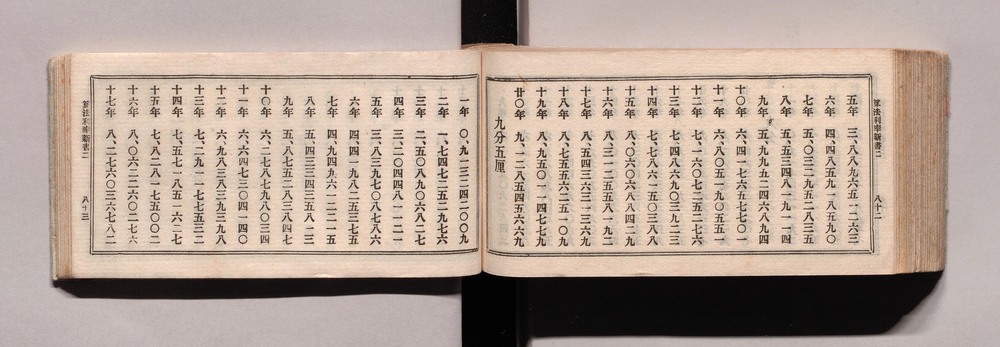 算法利率新書二　八十二
五年　三、八八九六五一二六三
六年　四、四八五九一八五九〇
七年　五、〇三二九五二八三五
八年　五、五三四八一九一一四
九年　五、九九五二四六八九四
十〇年　六、四一七六五七七〇一
十一年　六、八〇五一九〇五五一
十二年　七、一六〇七二五二七六
十三年　七、四八六九〇三九二三
十四年　七、七八六一五〇三八八
十五年　八、〇六〇六八八四二八
十六年　八、三一二五五八一九二
十七年　八、五四三六三一三六九
十八年　八、七五五六二五一〇九
十九年　八、九五〇一一四七七九
廿〇年　九、一二八五四五六六九
九分五厘
一年　〇、九一三二四二〇〇九
二年　一、七四七二五二九七六
三年　二、五〇八九〇六八二七
四年　三、二〇四四八一一二一
五年　三、八三九七〇八七八六
六年　四、四一九八二五三七五
七年　四、九四九六一二二一五
八年　五、四三三四三五八一三
九年　五、八七五二八三八四七
十〇年　六、二七八七九八〇三四
十一年　六、六四七三〇四一四〇
十二年　六、九八三八三九三九八
十三年　七、二九一一七七五三二
十四年　七、五七一八五一六二七
十五年　七、八二八一七五〇〇二
十六年　八、〇六二二六〇二七六
十七年　八、二七六〇三六七八二
算法利率新書二　八十三